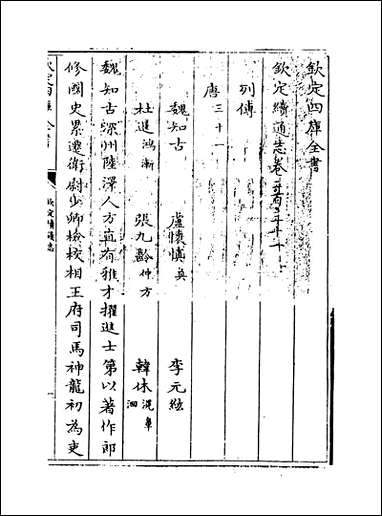 欽定四庫全書
欽定續通志卷
列傳
唐三十一
魏知古 盧懷慎奐 李元紘
杜暹鴻漸 張九齡仲方 韓休滉皐洄
魏知古深州陸澤人方直有雅才擢進士第以著作郎
修國史累遷衛尉少卿檢校相王府司馬神龍初為吏